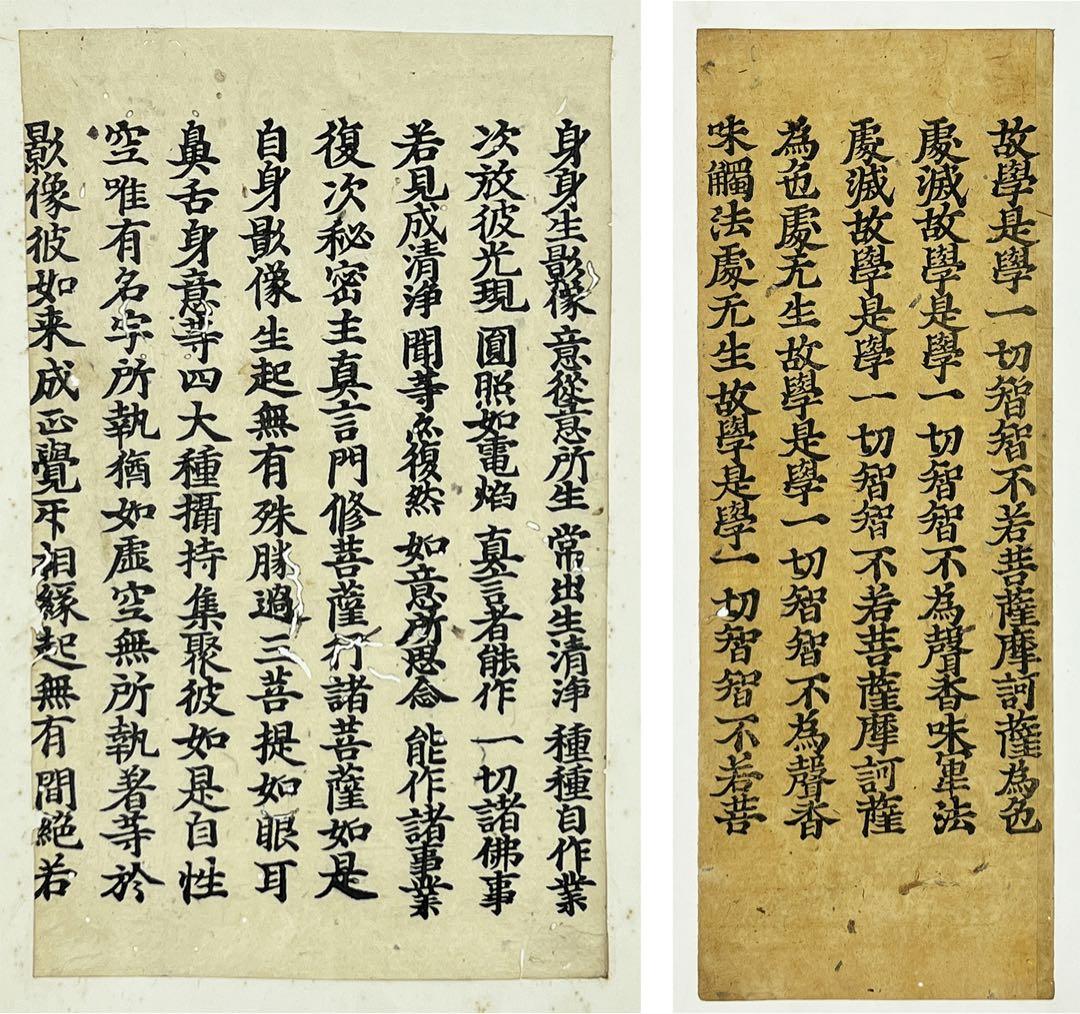 身身生影像 意從意所生 常出生清浄 種種自作業
次放彼光現 圓照如電焰 真言者能作 一切諸佛事
若見成清浄 聞等亦復然 如意所思念 能作諸事業
復次秘密主真言門修菩薩行諸菩薩如是
自身影像生起無有殊勝過三菩提如眼耳
鼻舌身意等四大種攝持集聚彼如是自性
空唯有名字所執猶如虛空無所執著等於
影像彼如来成正覺互相緣起無有間絕若
故學是學一切智智不若菩薩摩訶薩為色
處滅故學是學一切智智不為聲香味觸法
處滅故學是學一切智智不若菩薩摩訶薩
為色處无生故學是學一切智智不為聲香
味觸法處无生故學是學一切智智不若菩